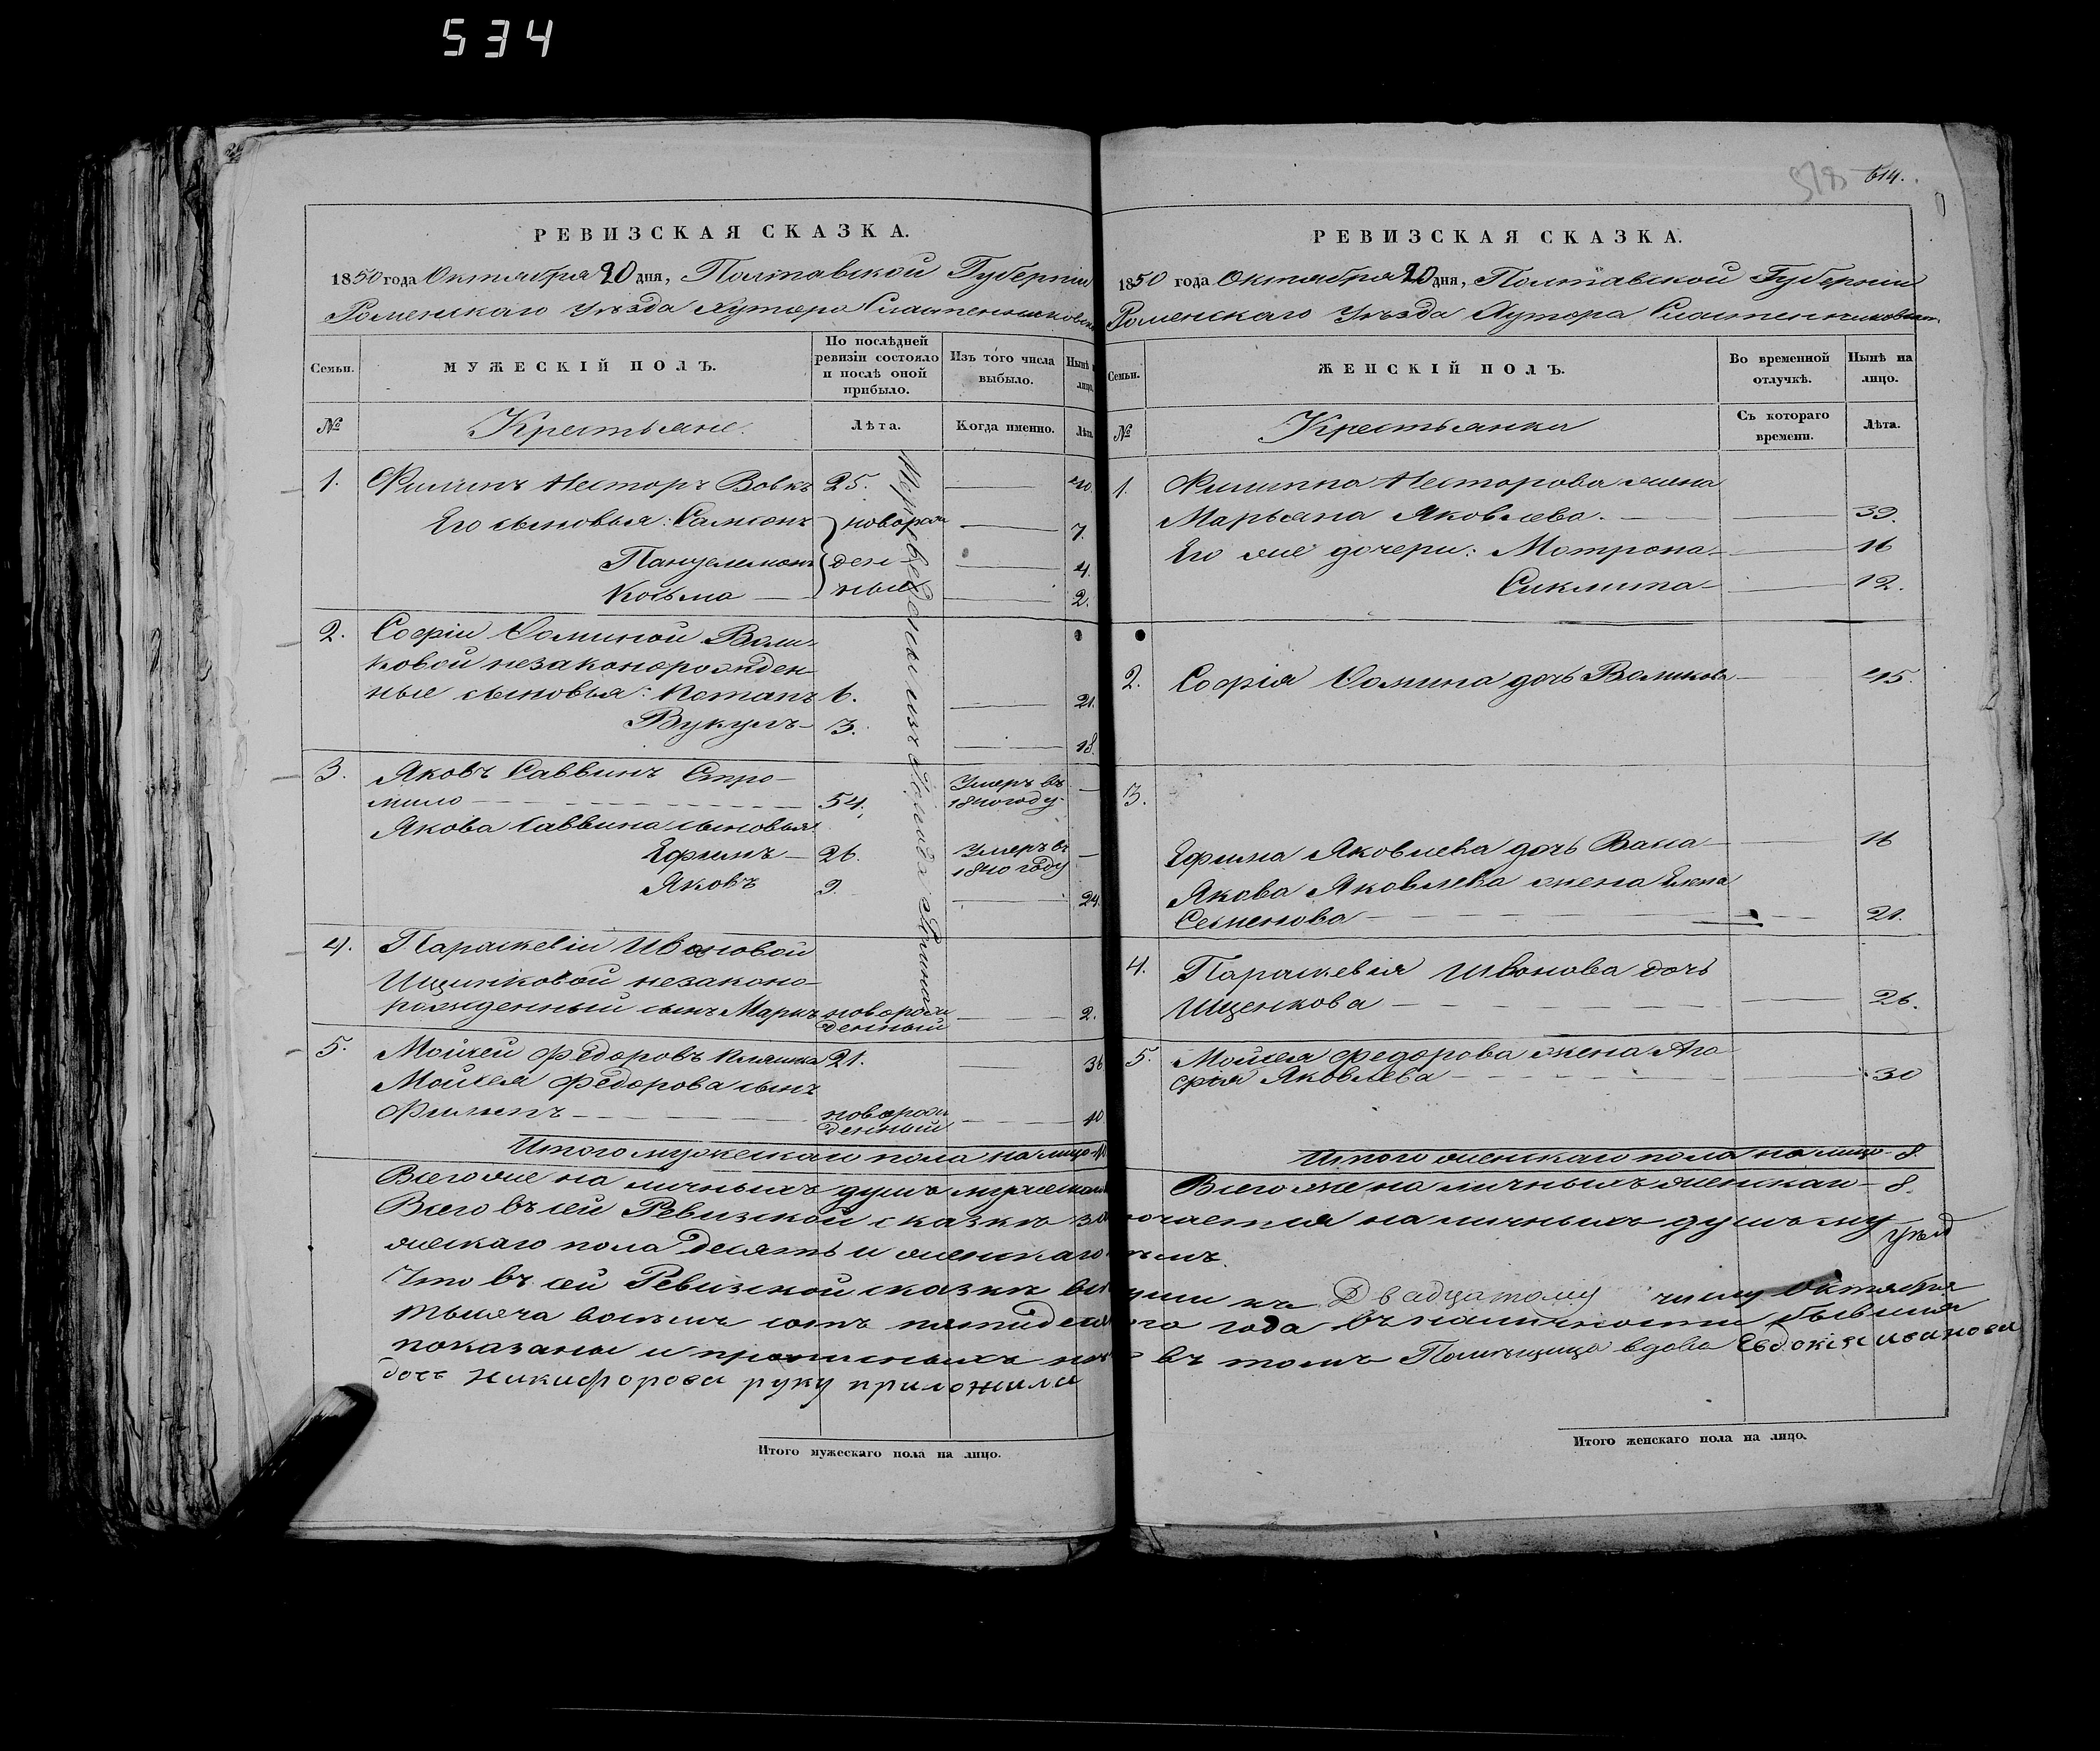 534
614.
РЕВИЗСКАЯ СКАЗКА.
1850 года Октября 20 дня, Полтавской Губерніи
Роменскаго Уѣзда Хутора
Семьи.
МУЖЕСКІЙ ПОЛЪ.
По послѣдней ревизіи состояло и послѣ оной прибыло.
Изъ того числа выбыло.
Нынѣ на лицо.
№
Крестьяне.
Лѣта.
Когда именно.
Лѣта.
1. Филипъ Несторъ Вовкъ 25. 40.
Его сыновья: Самсонъ новорож 7.
Пантелемонъ ден 4.
Козьма ные 2.
2. Софіи Фоминой Воли-
ковой незаконорожден
ные сыновья: Потапъ 6. 21.
Вукулъ 3. 18.
3. Яковъ Саввинъ Стро-
мило 54. Умеръ въ 1840 году
Якова Саввина сыновья
Ефимъ 26. Умеръ въ 1840 году
Яковъ 9. 24.
4. Параскевіи Ивановой
Ищенковой незаконо-
рожденный сынъ Маркъ новорож денный 2.
5. Мойсей Федоровъ 21. 36
Мойсея Федорова сынъ
Филипъ новорож денный 10
Итого мужескаго пола на лицо 10
Всего же наличныхъ душъ мужеска
РЕВИЗСКАЯ СКАЗКА.
1850 года Октября 20 дня, Полтавской Губерніи
Роменскаго Уѣзда Хутора
Семьи.
ЖЕНСКІЙ ПОЛЪ.
Во временной отлучкѣ.
Нынѣ на лицо.
№
Крестьянки
Съ котораго времени.
Лѣта.
1. Филиппа Несторова жена
Марьяна Яковлева. 39.
Его же дочери: Мотрона 16
Сиклита 12.
2. Софія Фомина дочь Воликова 45.
3.
Ефима Яковлева дочь Васса 16
Якова Яковлева жена Елена
Семенова 21.
4. Параскевія Иванова дочь
Ищенкова 26.
5. Мойсея Федорова жена Ага
фия Яковлева 30
Итого женскаго пола на лицо 8.
Всего же наличныхъ женскаго 8.
Всего въ сей Ревизской сказкѣ значается наличныхъ душъ му
жескаго пола десять и женскаго
Что въ сей Ревизской сказкѣ всѣ души къ Двадцатому числу Октября
тысяча восемь сотъ пятидесятого года въ наличности бывшія
показаны и прописныхъ нѣтъ въ томъ Помѣщица вдова Евдокія Иванова
дочь Никифорова руку приложила
Итого мужескаго пола на лицо.
Итого женскаго пола на лицо.